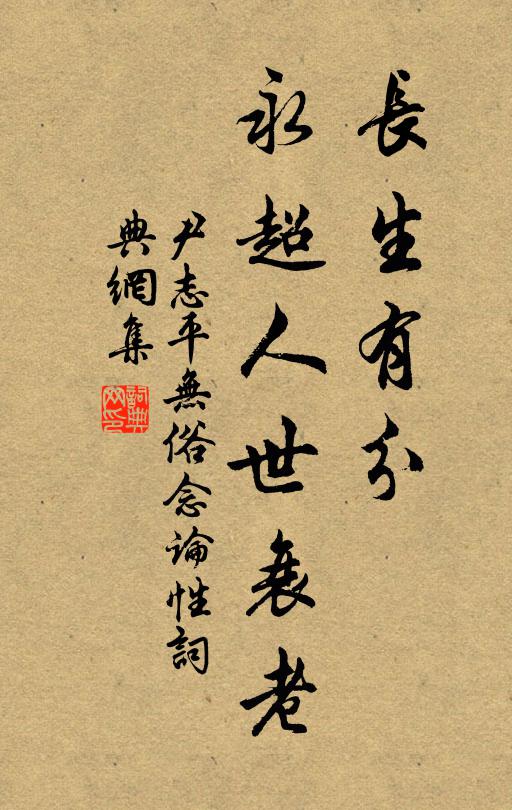 長生有分
永超人世衰老
尹志平無俗念論性詞
典網集
詞典
网印